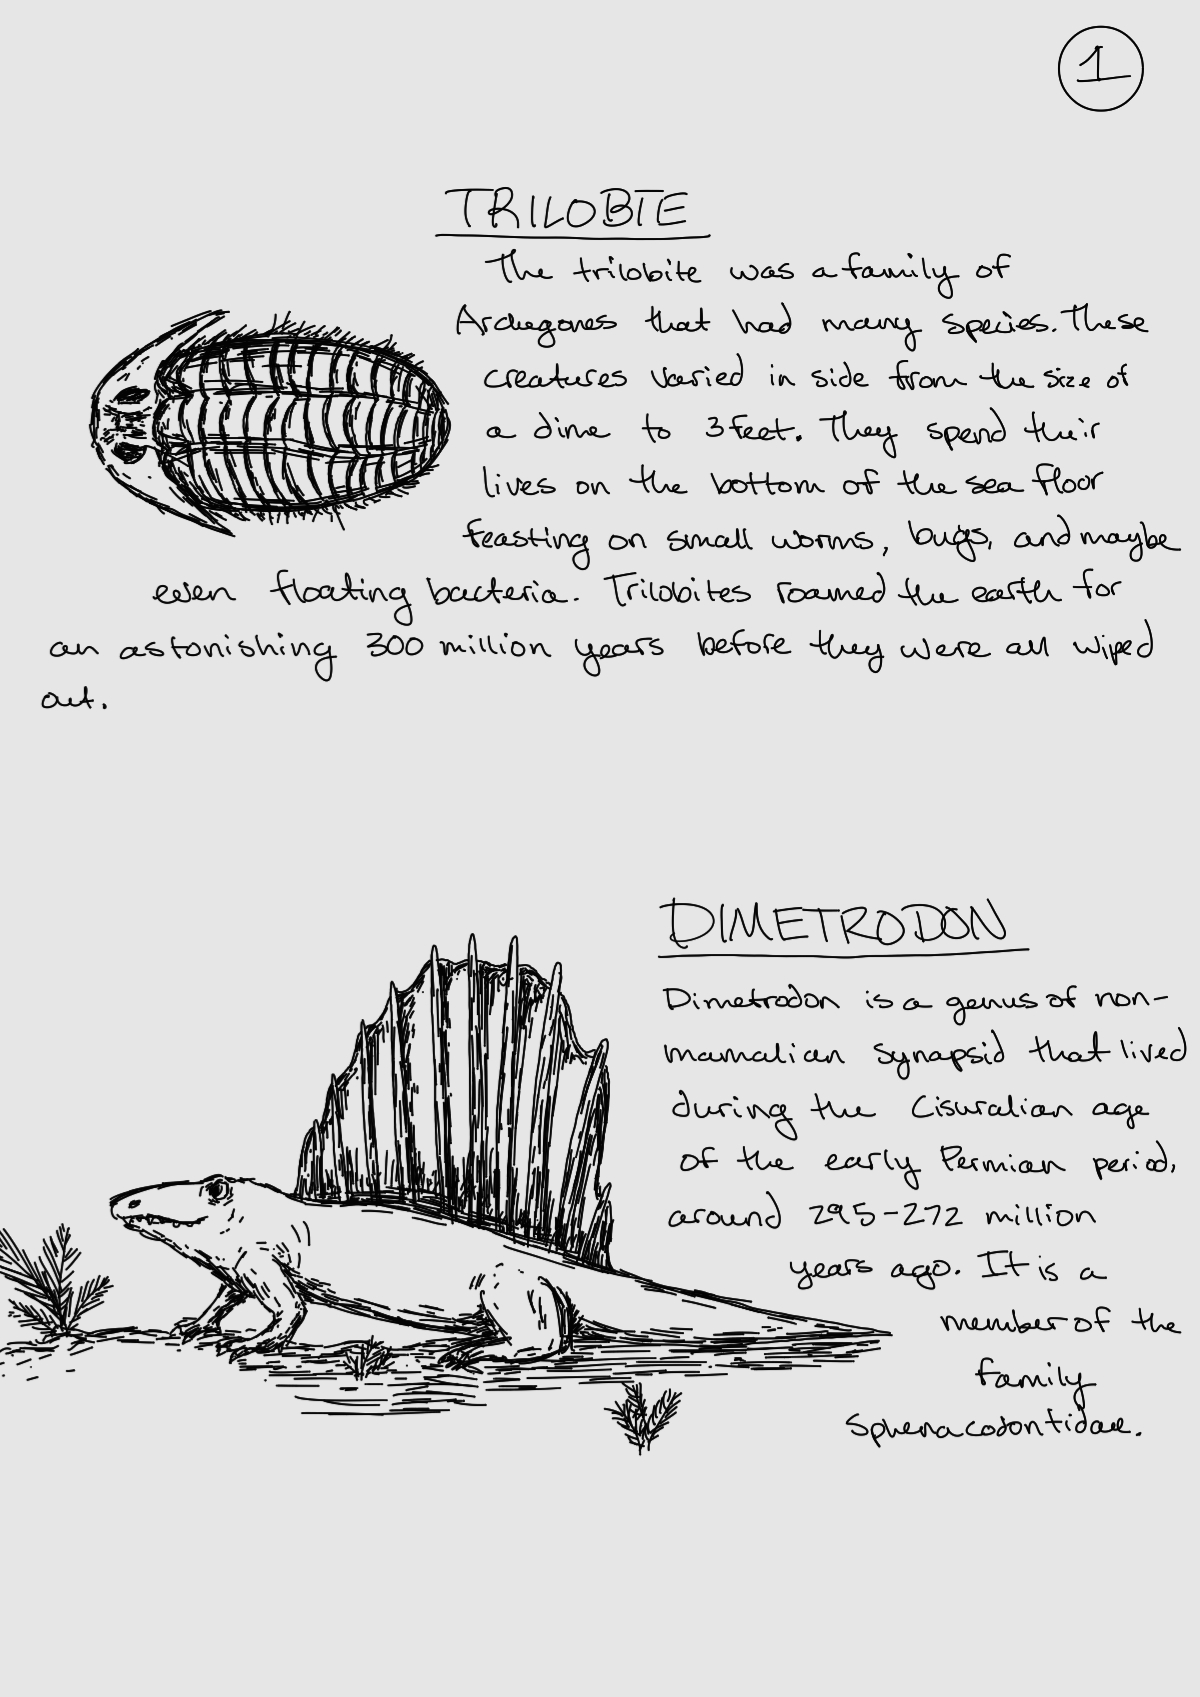 1
TRILOBITE
The trilobite was a family of
Archegones that had many species. These
creatures varied in side from the size of
a dime to 3 feet. They spend their
lives on the bottom of the sea floor
feasting on small worms, bugs, and maybe
even floating bacteria. Trilobites roamed the earth for
an astonishing 300 million years before they were all wiped
out.
DIMETRODON
Dimetrodon is a genus of non-
mamalian synapsid that lived
during the Cisuralian age
of the early Permian period,
around 295-272 million
years ago. It is a
member of the
family
Sphenacodontidae.